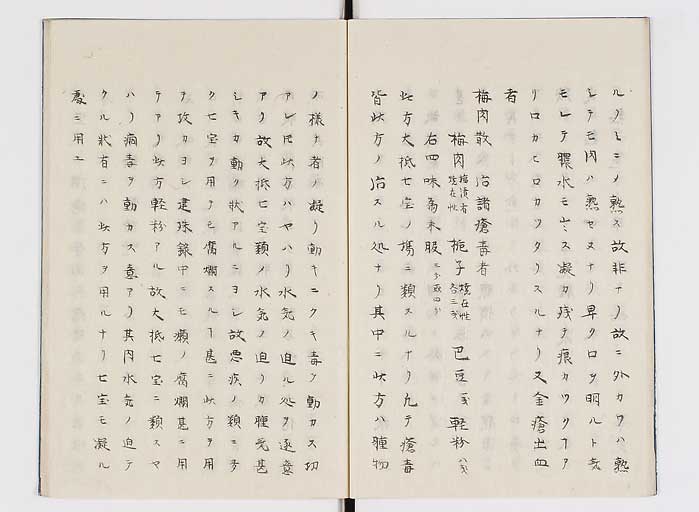 ルノミニノ熟ス故非ナリ故ニ外カワハ熟
シテモ内ハ熟セヌナリ早クロヲ明ルト兎
モレテ膿水モ出ス凝カ残テ痕カツクナリ
リロカヒロカツタリスルナリ又金瘡出血
者
梅肉散 治諸瘡毒者
梅肉 梔子 巴豆 軽粉
右四味為末服
此方大抵七宝ノ場ニ類スルナリ凡テ瘡毒
皆此方ノ治スル処ナリ其中ニ此方ハ腫物
ノ様ナ者ノ凝リ動キニクキ毒ヲ動カス切
アレ𪜈此方ハヤハリ水気ノ迫ル処ヲ逐意
アリ故大抵七宝類ノ水気ノ迫リカ腫気甚
シキカ動ク状アルニヨシ故悪疾ノ類ニ多
ク七宝ヲ用ク𪜈腐爛スルヿ甚ニ此方ヲ用
テ攻カヨシ建珠録中ニモ癩ノ腐爛甚ニ用
テアリ此方軽粉アル故大抵七宝ニ類スヤ
ハリ病毒ヲ動カス意アリ其内水気ノ迫テ
クル状有ニハ此方ヲ用ルナリ七宝モ凝ル
処ニ用ユ